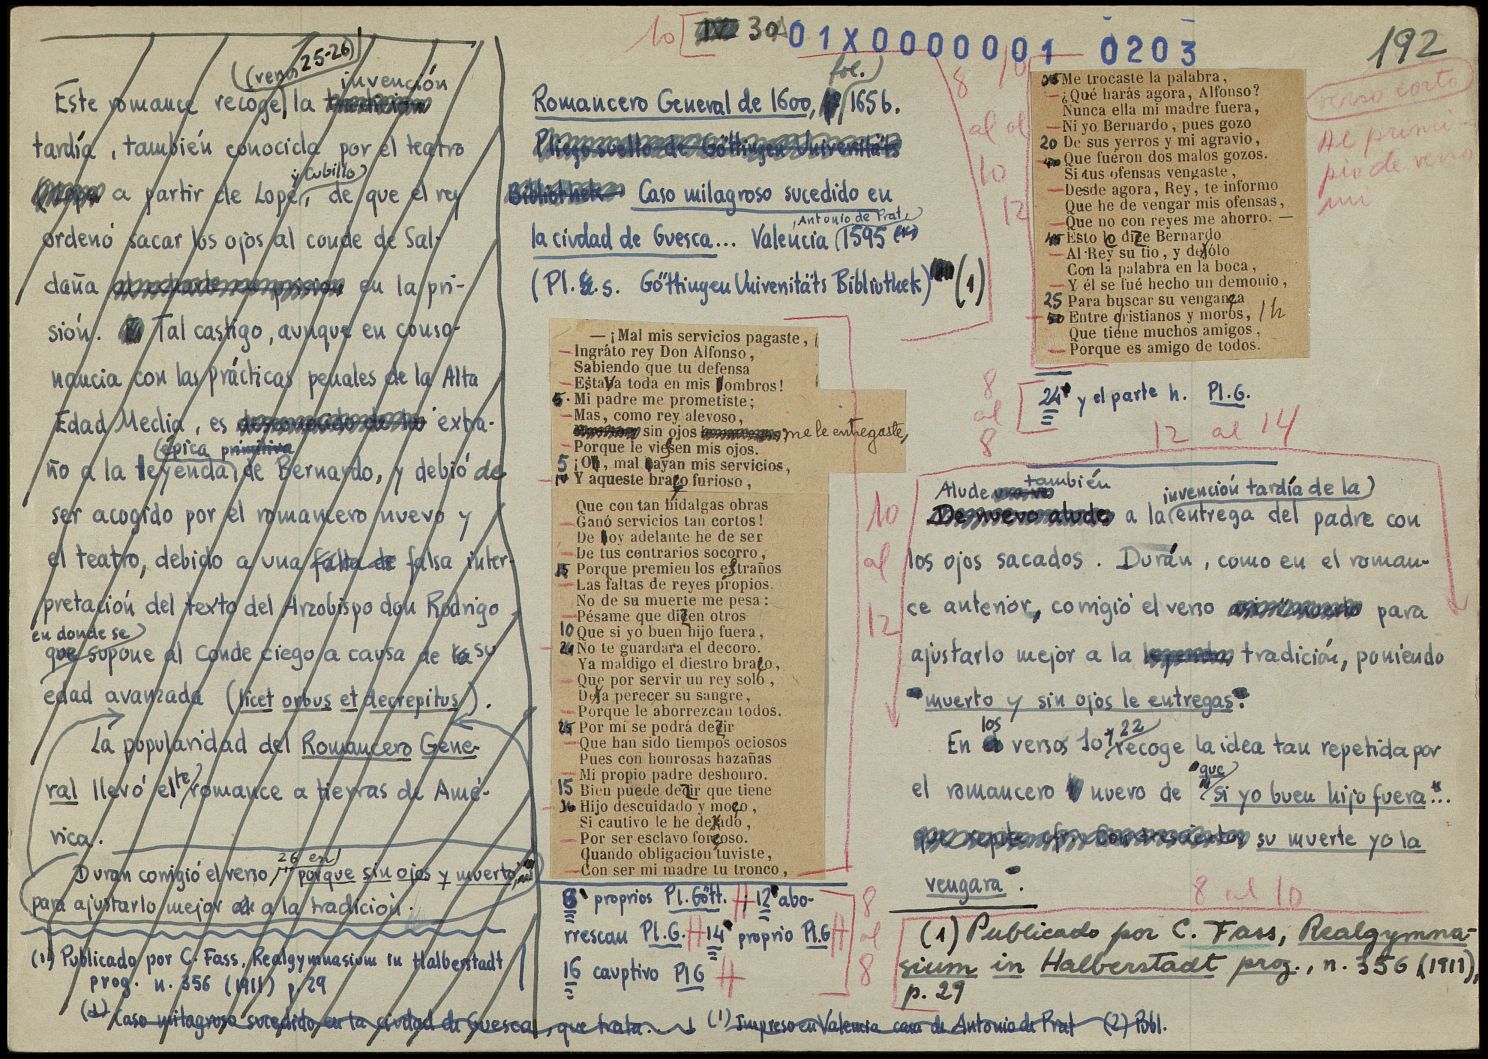 10 [ 30A 01X0000001 0203
192
(verso 25-26)
invención
Este romance recoge la
tardía, también conocida por el teatro
y Cubillo
a partir de Lope, de que el rey
ordenó sacar los ojos al conde de Sal-
daña en la pri-
sión. Tal castigo, aunque en conso-
nancia con las prácticas penales de la Alta
Edad Media, es extra-
épica primitiva
ño a la leyenda de Bernardo, y debió de
ser acogido por el romancero nuevo y
el teatro, debido a una falta de falsa inter-
pretación del texto del Arzobispo don Rodrigo
en donde se
que supone al Conde ciego a causa de la su
edad avanzada (licet orbus et decrepitus).
La popularidad del Romancero Gene-
ral llevó el te romance a tierras de Amé-
rica.
26 en
Duran corrigió el verso porque sin ojos y muerto
para ajustarlo mejor a la tradición.
(1) Publicado por C. Fass, Realgymnasium in Halberstadt
prog. n. 356 (1911) p 29
(1) Caso milagroso sucedido en la civdad de Guesca, que trata. (1) Impreso en Valencia casa de Antonio de Prat (2) Bibl.
fol.
Romancero General de 1600, 165b.
Pliego suelto de Göttingen Univenitäts
Bibliothek Caso milagroso sucedido en
Antonio de Prat
la civdad de Guesca... Valencia 1595
(Pl. s. Göttingen Univenitäts Bibliothek) (1)
— ¡Mal mis servicios pagaste,
Ingráto rey Don Alfonso,
Sabiendo que tu defensa
Estava toda en mis hombros!
5 Mi padre me prometiste;
Mas, como rey alevoso,
sin ojos me le entregaste,
Porque le viesen mis ojos.
5 ¡Oh, mal hayan mis servicios,
10 Y aqueste braço furioso,
Que con tan hidalgas obras
Ganó servicios tan cortos!
De hoy adelante he de ser
De tus contrarios socorro,
15 Porque premien los estraños
Las faltas de reyes propios.
No de su muerte me pesa:
Pésame que dizen otros
10 Que si yo buen hijo fuera,
20 No te guardara el decoro.
Ya maldigo el diestro braço,
Que por servir un rey solo,
Dexa perecer su sangre,
Porque le aborrezcan todos.
25 Por mi se podrá dezir
Que han sido tiempos ociosos
Pues con honrosas hazañas
Mi propio padre deshonro.
15 Bien puede dezir que tiene
30 Hijo descuidado y moço,
Si cautivo le he dexado,
Por ser esclavo forçoso.
Cuando obligacion tuviste,
Con ser mi madre tu tronco,
8 proprios Pl. Gött. 12 abo-
rrescan Pl. G. 14 proprio Pl. G
16 cavptivo Pl G
8
al
8
8 10
al al
10
12
10
al
12
35 Me trocaste la palabra,
—¿Qué harás agora, Alfonso?
Nunca ella mi madre fuera,
Ni yo Bernardo, pues gozo
20 De sus yerros y mi agravio,
40 Que fuéron dos malos gozos.
Si tus ofensas vengaste,
Desde agora, Rey, te informo
Que he de vengar mis ofensas,
Que no con reyes me ahorro. —
45 Esto lo dize Bernardo
Al Rey su tio, y dexólo
Con la palabra en la boca,
Y él se fué hecho un demonio,
25 Para buscar su vengança
50 Entre cristianos y moros, / h
Que tiene muchos amigos,
Porque es amigo de todos.
verso corto
Al princi-
pio de verso
mi
8
al
8
24 y el parte h. Pl. G.
12 al 14
Alude también
De nuevo alude a la invención tardía de la entrega del padre con
los ojos sacados. Durán, como en el roman-
ce anterior, corrigió el verso para
ajustarlo mejor a la tradición, poniendo
"muerto y sin ojos le entregas".
En los versos 10 y 22 recoge la idea tan repetida por
el romancero nuevo de que "si yo buen hijo fuera...
su muerte yo la
vengara".
8 al 10
(1) Publicado por C. Fass, Realgymna-
sium in Halberstadt prog., n. 356 (1911),
p. 29